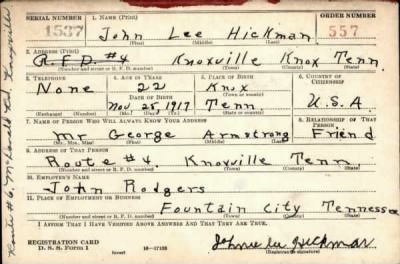 SERIAL NUMBER 1. NAME (Print) ORDER NUMBER
1537 John Lee Hickman 557
(First) (Middle) (Last)
2. ADDRESS (Print)
R.F.D. #4 Knoxville Knox Tenn
(Number and street or R. F. D. number) (Town) (County) (State)
3. TELEPHONE 4. AGE IN YEARS 5. PLACE OF BIRTH 6. COUNTRY OF CITIZENSHIP
None 22 Knox
DATE OF BIRTH (Town or county)
Nov 25 1917 Tenn U.S.A.
(Exchange) (Number) (Mo.) (Day) (Yr.) (State or country)
7. NAME OF PERSON WHO WILL ALWAYS KNOW YOUR ADDRESS 8. RELATIONSHIP OF THAT PERSON
Mr George Armstrong Friend
(Mr., Mrs., Miss) (First) (Middle) (Last)
9. ADDRESS OF THAT PERSON
Route #4 Knoxville Tenn
(Number and street or R. F. D. number) (Town) (County) (State)
10. EMPLOYER'S NAME
John Rodgers
11. PLACE OF EMPLOYMENT OR BUSINESS
Fountain City Tennessee
(Number and street or R. F. D. number) (Town) (County) (State)
I AFFIRM THAT I HAVE VERIFIED ABOVE ANSWERS AND THAT THEY ARE TRUE.
REGISTRATION CARD
D. S. S. Form 1 (over) 16—17105 Johnie Lee Hickman
Route #6, Rd, Knoxville